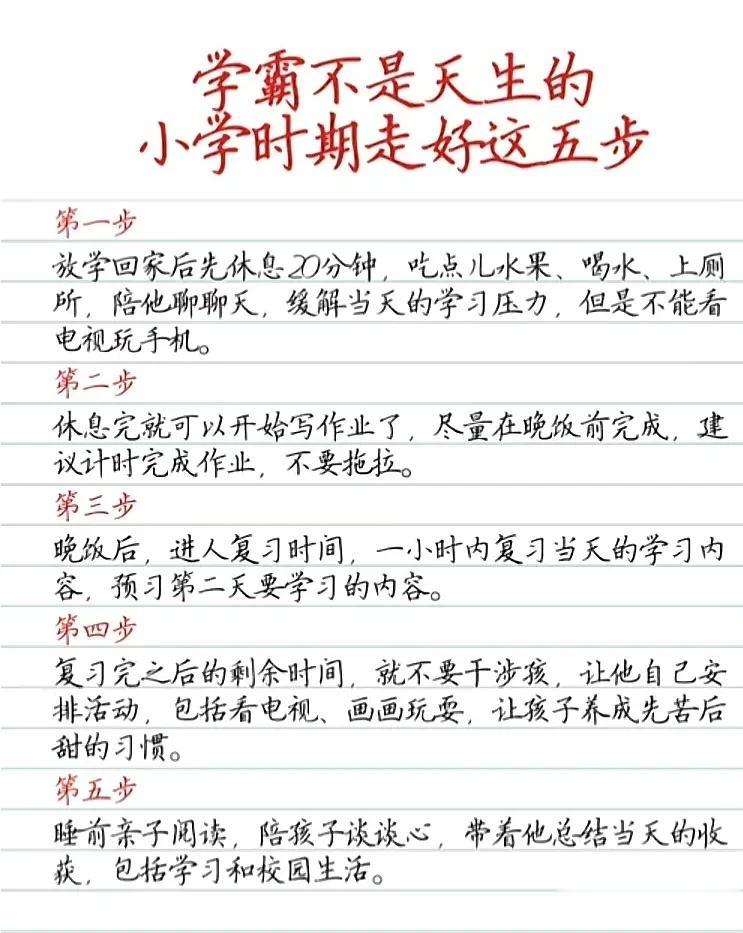 学霸不是天生的
小学时期走好这五步
第一步
放学回家后先休息20分钟，吃点儿水果、喝水、上厕
所，陪他聊聊天，缓解当天的学习压力，但是不能看
电视玩手机。
第二步
休息完就可以开始写作业了，尽量在晚饭前完成，建
议计时完成作业，不要拖拉。
第三步
晚饭后，进人复习时间，一小时内复习当天的学习内
容，预习第二天要学习的内容。
第四步
复习完之后的剩余时间，就不要干涉孩，让他自己安
排活动，包括看电视、画画玩耍，让孩子养成先苦后
甜的习惯。
第五步
睡前亲子阅读，陪孩子谈谈心，带着他总结当天的收
获，包括学习和校园生活。